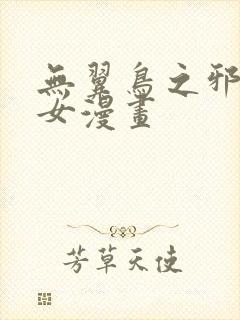 無翼鳥之邪
女漫畫
芳草天使